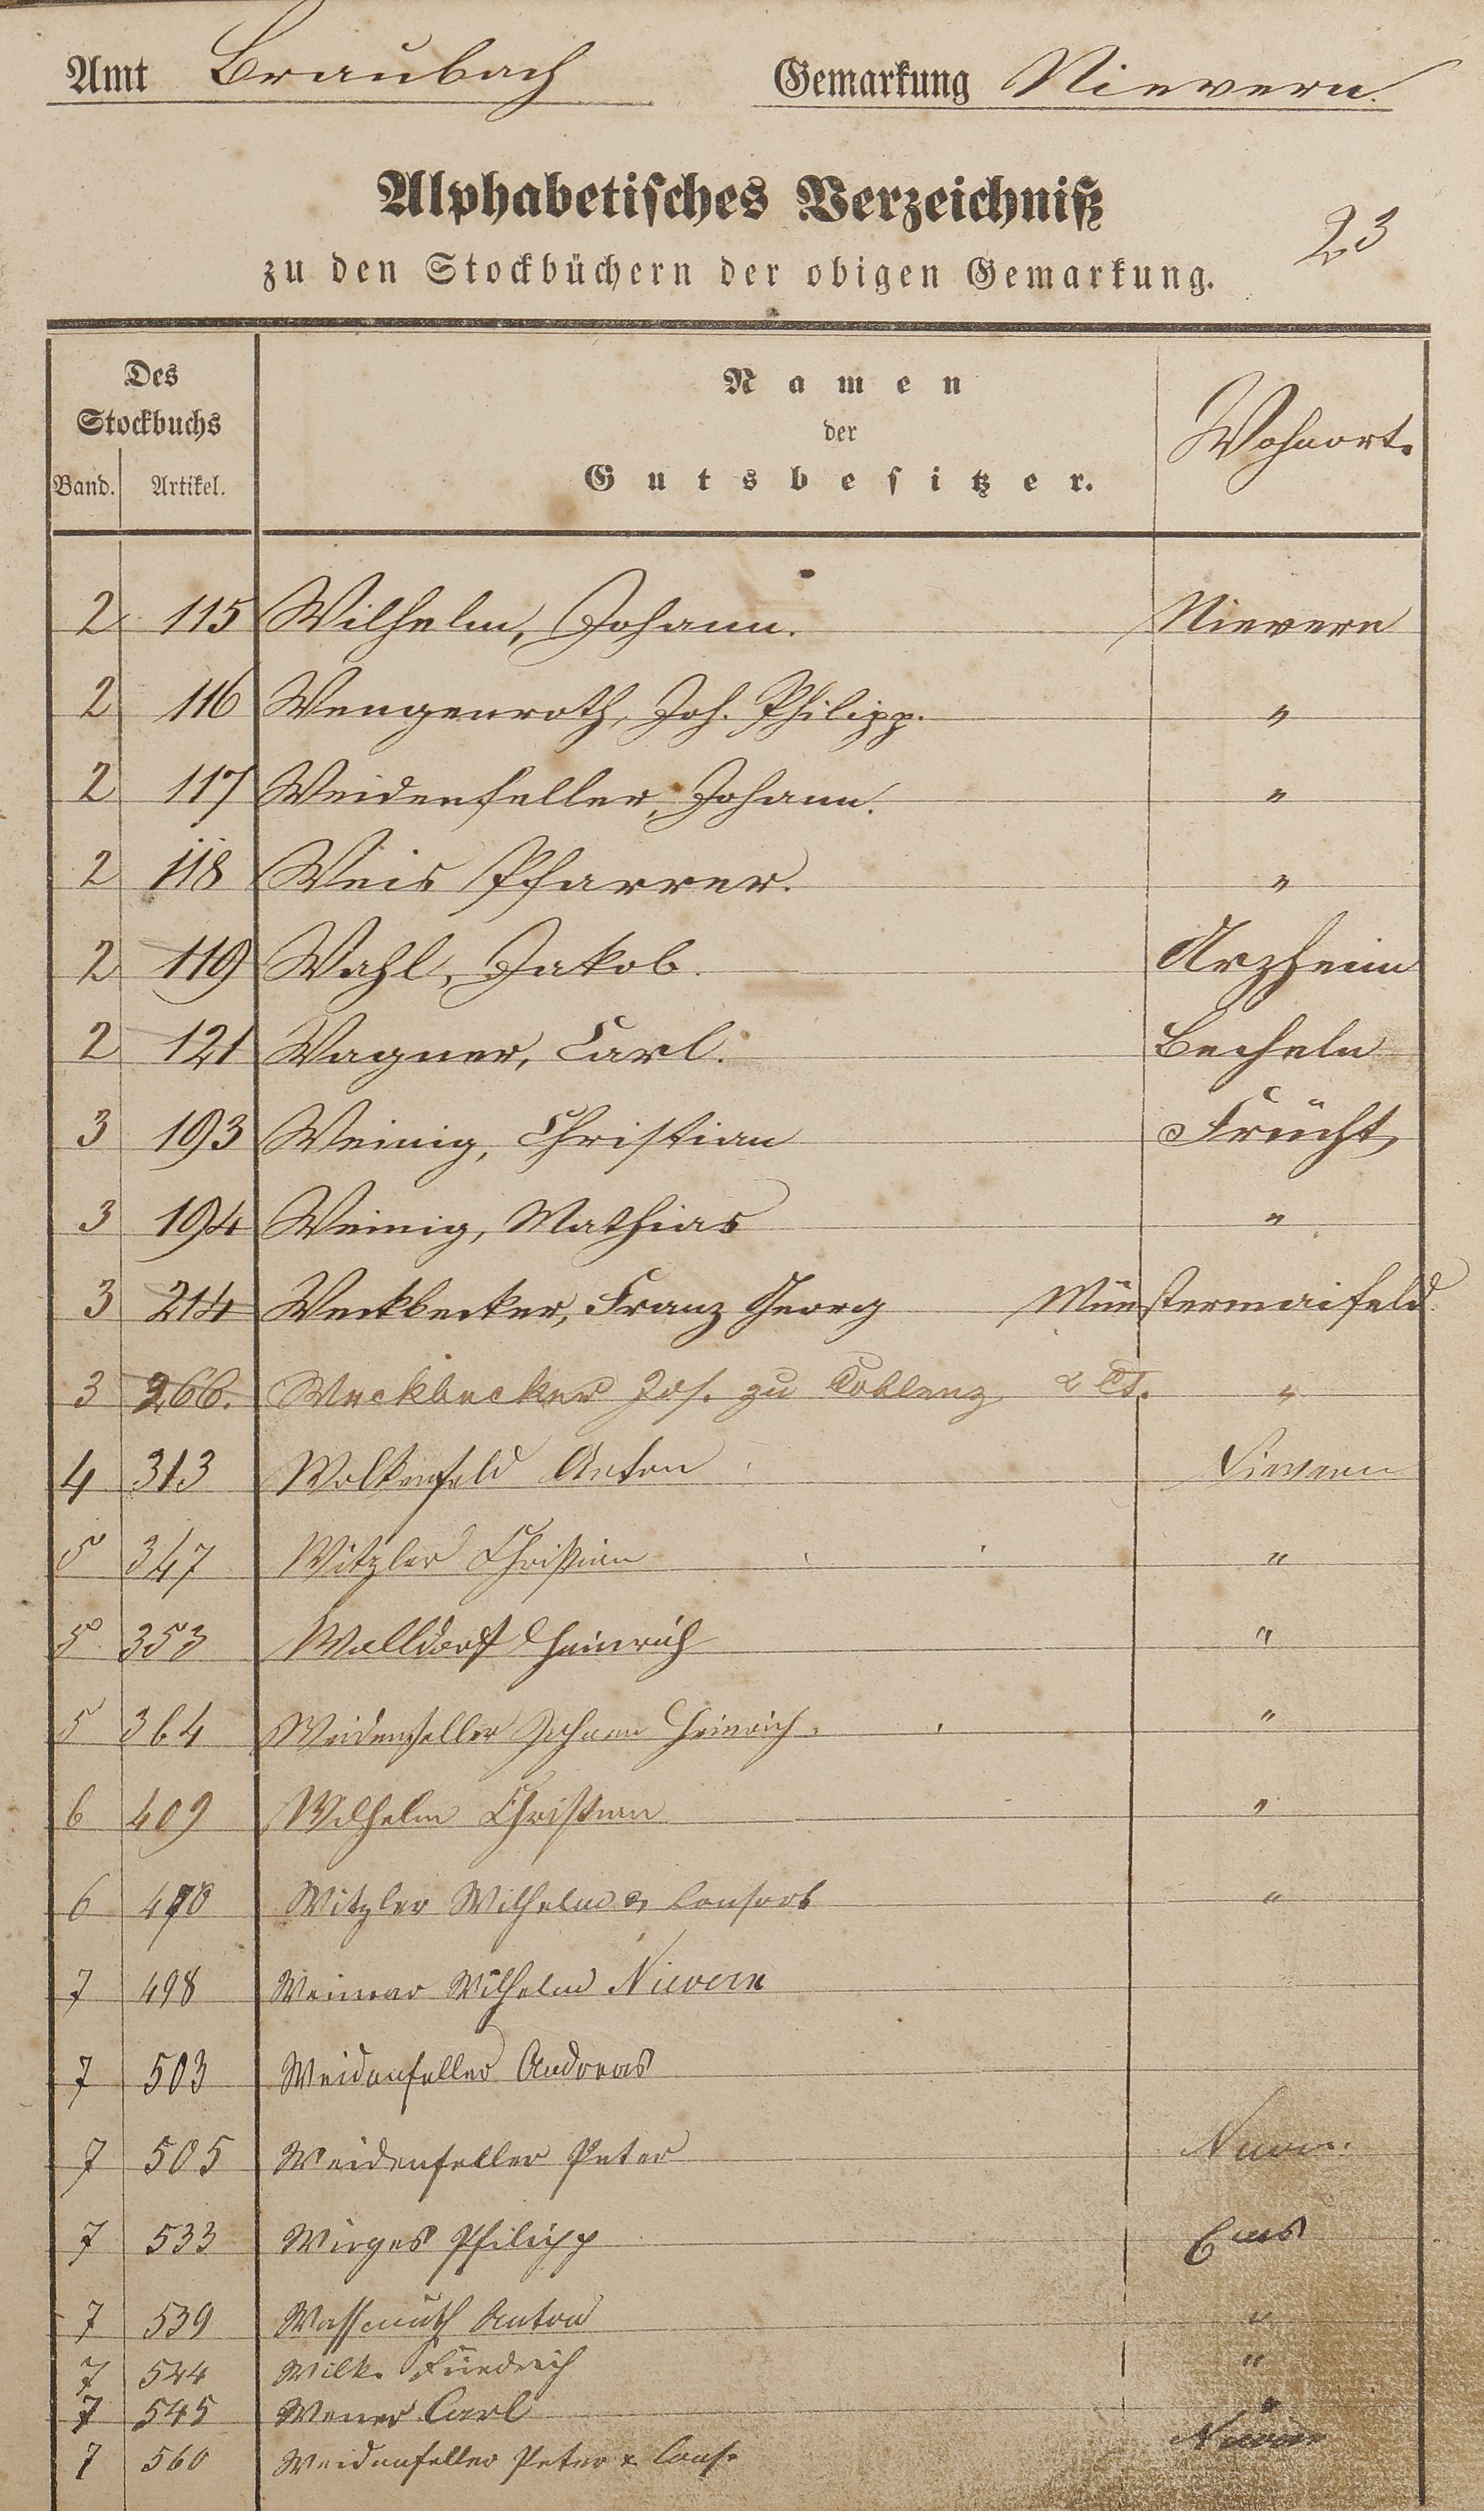 Amt Braubach Gemarkung Nievern.
Alphabetisches Verzeichniß
23
zu den Stockbüchern der obigen Gemarkung.
Des Stockbuchs
Band. Artikel.
Namen
der
Gutsbesitzer.
Wohnort.
2 115 Wilhelm, Johann. Nievern
2 116 Wengenroth, Joh. Philipp. "
2 117 Weidenfeller, Johann. "
2 118 Weis Pfarrer. "
2 119 Wahl, Jakob. Arzheim
2 121 Wagner, Carl. Becheln
3 193 Weinig, Christian Frücht
3 194 Weinig, Mathias "
3 214 Weckbecker, Franz Georg Münstermaifeld
3 266. Weckbecker Jos. zu Coblenz "
4 313 Wolkenfeld Anton Nievern
5 347 Witzler Christian "
5 353 Walldorf Heinrich "
5 364 Weidenfeller Johann Heinrich. "
6 409 Wilhelm Christian "
6 470 Witzler Wilhelm & Consort "
7 498 Weimar Wilhelm Nievern
7 503 Weidenfeller Andreas
7 505 Weidenfeller Peter Nievern.
7 533 Wirges Philipp Ems
7 539 Wassmuth Anton "
7 544 Wilk. Friedrich "
7 545 Carl "
7 560 Weidenfeller Peter & Cons. Nievern